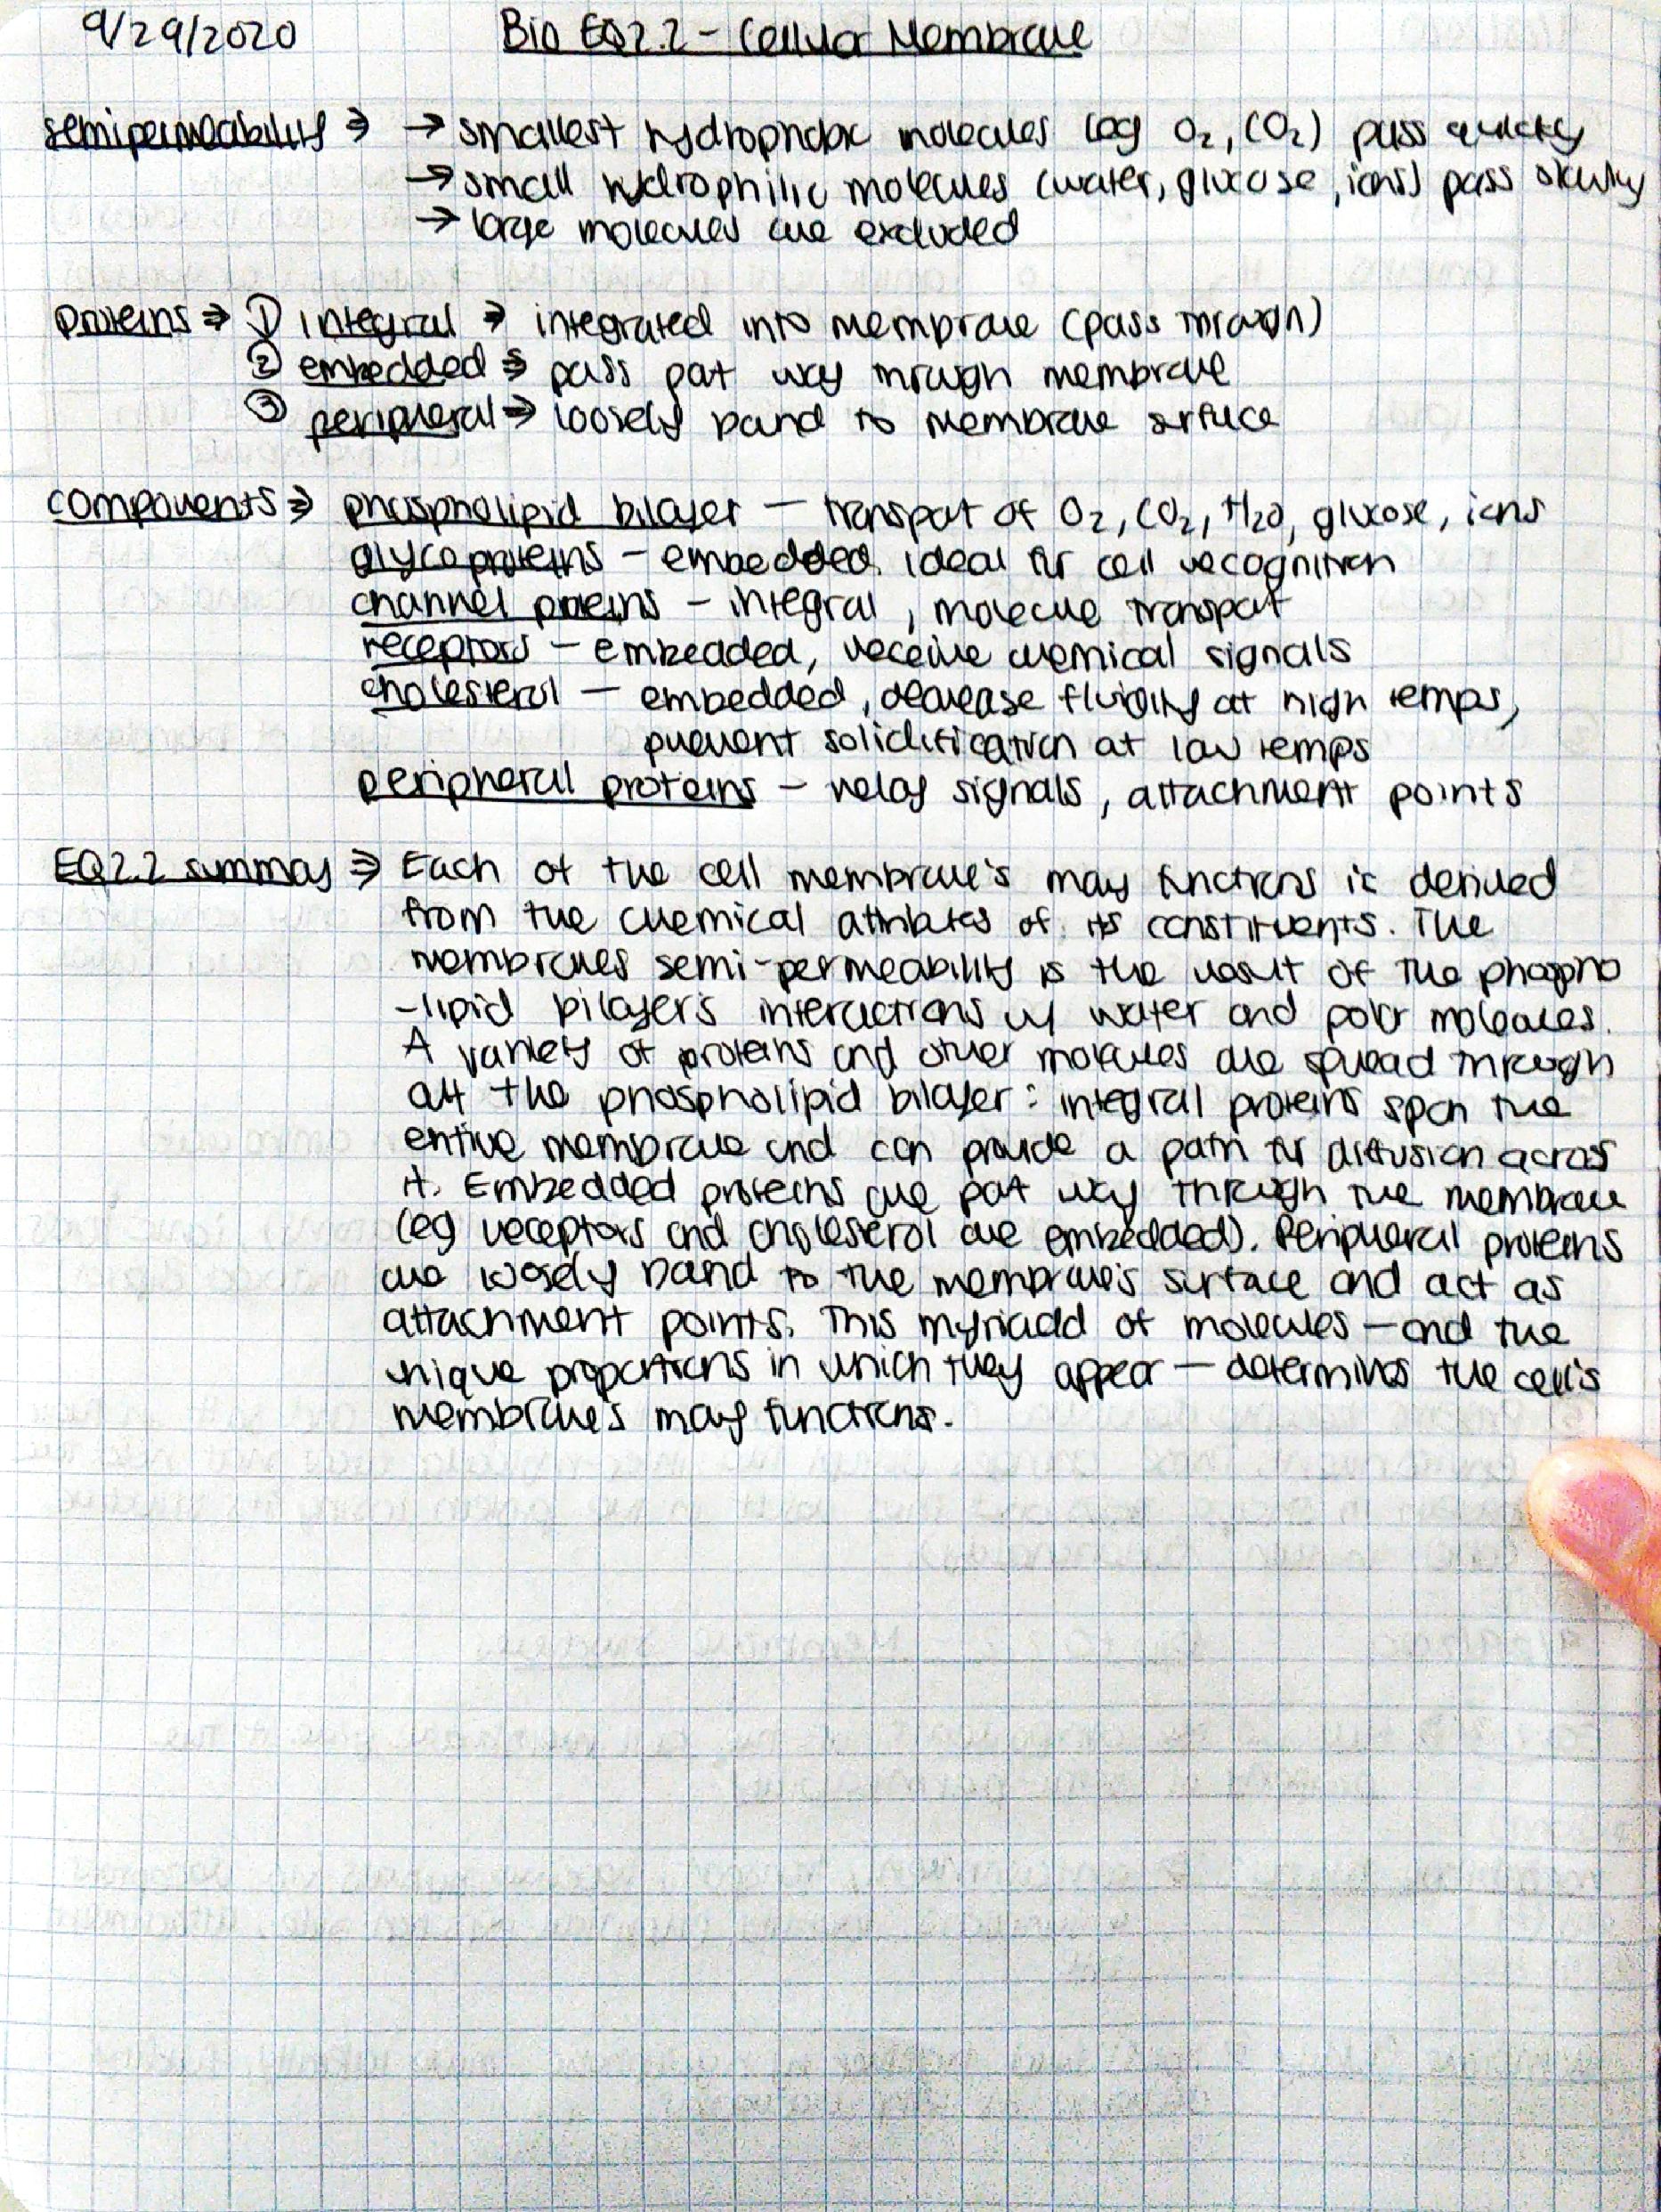 9/29/2020 Bio EQ2.2 - Cellular Membrane
semipermeability ⇒ → smallest hydrophobic molecules (eg O₂, CO₂) pass quickly
→ small hydrophilic molecules (water, glucose, ions) pass slowly
→ large molecules are excluded
proteins ⇒ ① integral ⇒ integrated into membrane (pass through)
② embedded ⇒ pass part way through membrane
③ peripheral ⇒ loosely bound to membrane surface
components ⇒ phospholipid bilayer — transport of O₂, CO₂, H₂O, glucose, ions
glycoproteins - embedded, ideal for cell recognition
channel proteins - integral, molecule transport
receptors - embedded, receive chemical signals
cholesterol — embedded, decrease fluidity at high temps,
prevent solidification at low temps
peripheral proteins - relay signals, attachment points
EQ2.2 summary ⇒ Each of the cell membrane's many functions is derived
from the chemical attributes of its constituents. The
membranes semi-permeability is the result of the phospho
-lipid bilayer's interactions w/ water and polar molecules.
A variety of proteins and other molecules are spread through
out the phospholipid bilayer: integral proteins span the
entire membrane and can provide a path for diffusion across
it. Embedded proteins are part way through the membrane
(eg receptors and cholesterol are embedded). Peripheral proteins
are loosely bound to the membrane's surface and act as
attachment points. This myriadd of molecules — and the
unique proportions in which they appear — determines the cell's
membrane's many functions.